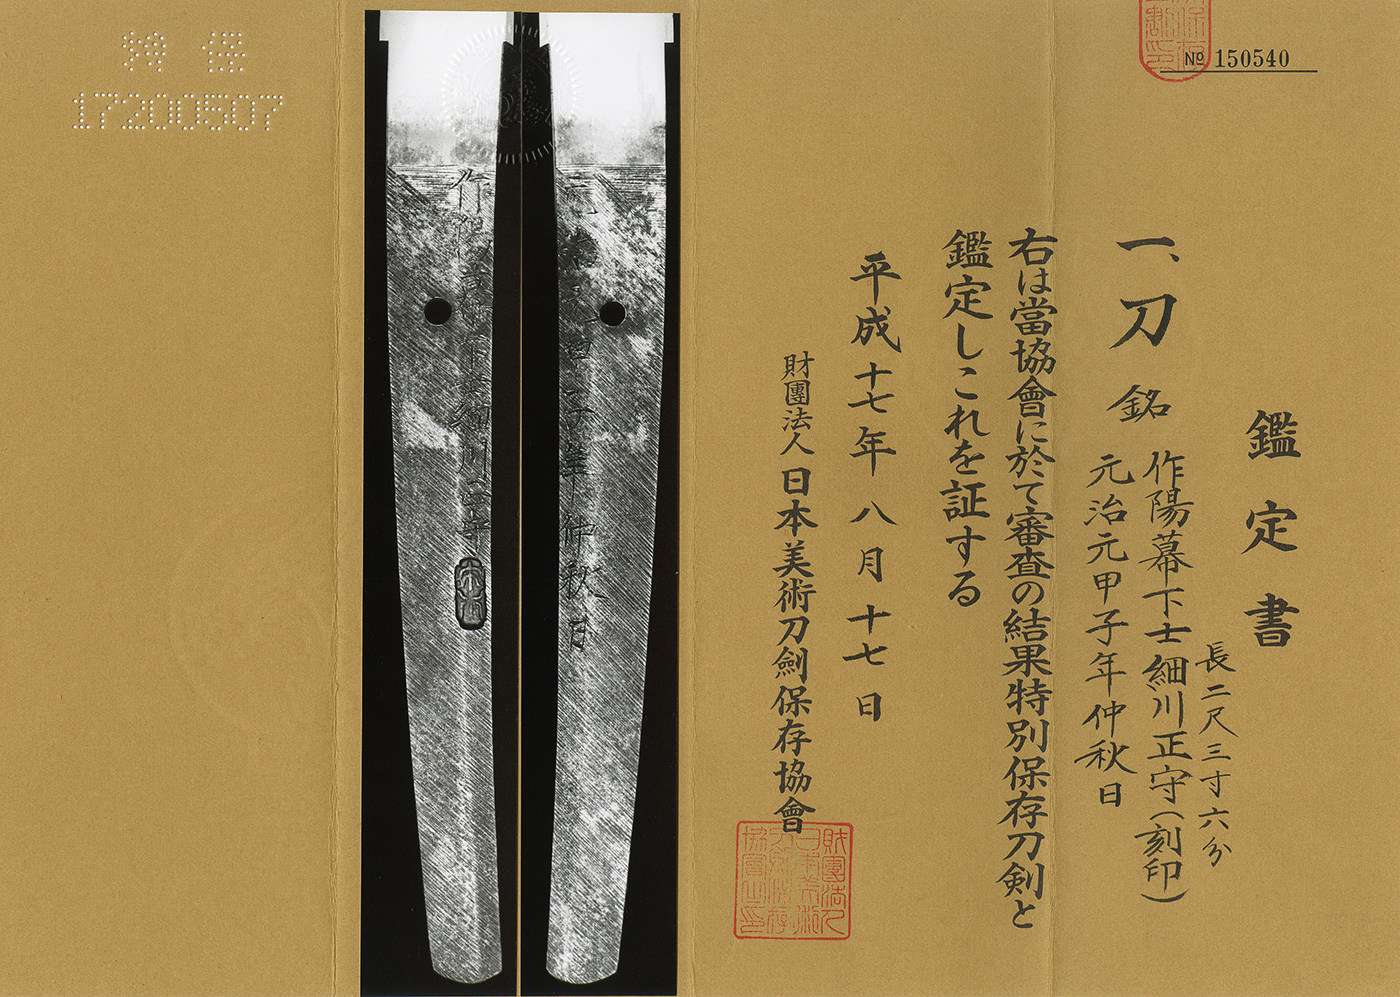 No 150540
鑑定書
長二尺三寸六分
一、刀 銘 作陽幕下士細川正守(刻印)
元治元甲子年仲秋日
右は當協會に於て審査の結果特別保存刀剣と
鑑定しこれを証する
平成十七年八月十七日
財團法人 日本美術刀劍保存協會
財團法人
日本美術
刀劍保存
協會之印
17200507